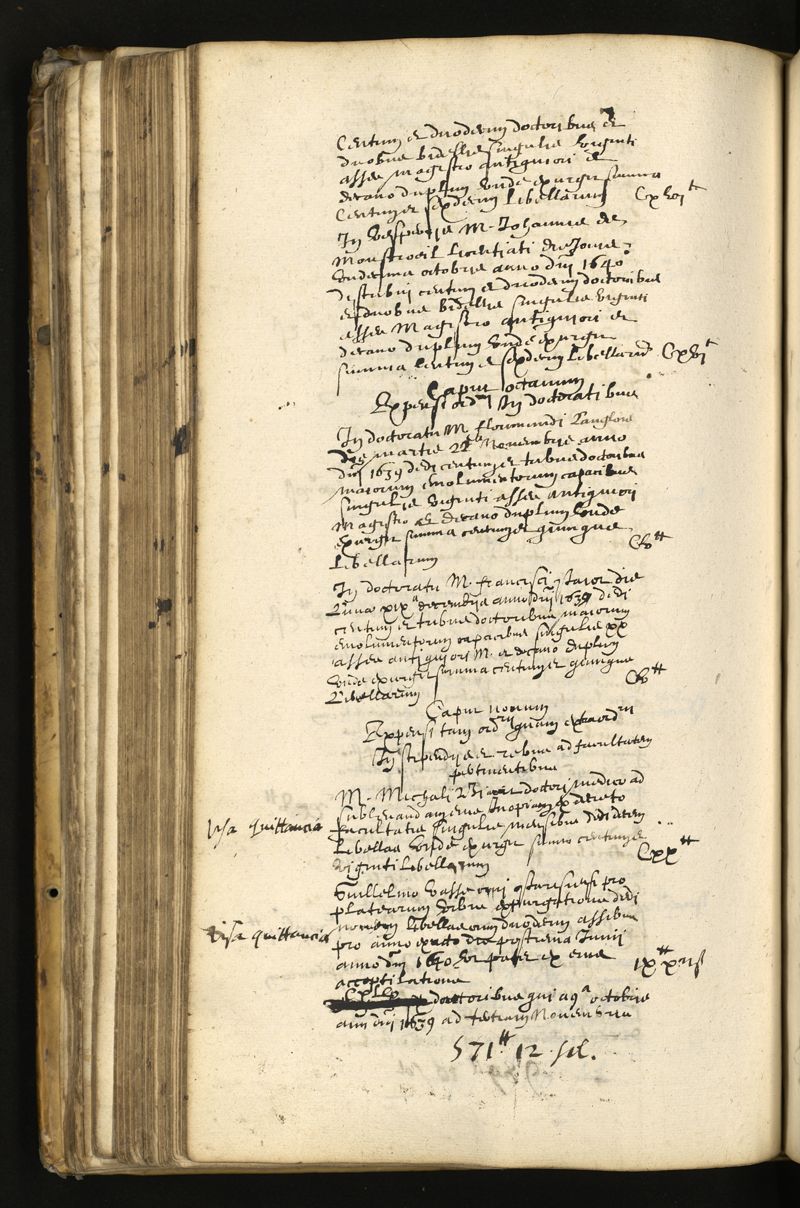 Centum et duodecim doctoribus et
duobus bidellis singulis viginti
asses magistro antiquiori et
decano duplum unde exurgit summa
Centum et sexdecim libellarum CxVI ₶
In vesperiis M. Johannis de
Monstroeil licentiati die Jovis
undecima octobris anno dni 1640
distribui centum et duodecim doctoribus
et duobus bidellis singulis viginti
asses Magistro antiquiori et
decano duplum unde exurgit
summa centum et sexdecim libellarum CxVI ₶
Caput octavum
Expensi ord in doctoratibus
In doctoratu M. florimundi Langlois
die martis 22a Novembris anno
dni 1639 dedi centum et tribus doctoribus
maiorum emolumentorum capacibus
singulis viginti asses antiquiori
Magistro et decano duplum unde
exurgit summa centum et quinque
libellarum CV ₶
In doctoratu M. francisci die
Lunae xix a decembris anno dni 1639 dedi
centum et tribus doctoribus maiorum
emolumentorum capacibus singulis xx
asses antiquiori M. et decano duplum
unde exurgit summa centum et quinque
Libellarum CV ₶
Caput nonum
Expensi tam ord rii quam extraord rii
In stipendiis et rebus ad facultatem
pertinentibus
M. Michali doctori medico ad
sublevandam eius inopiam ex decreto
visa quittancia facultatis singulis mensibus dedi decem
libellas unde exurgit summa centum et
viginti libellarum Cxx ₶
Guillelmo Vasse pro
platearum urbis expurgatione dedi
visa quittancia novem libellas cum duodecim assibus
pro anno exacto die postrema Junii
anno dni 1640 ut patet ex eius
acceptilatione ix ₶ xii s
doctoribus qui a 9a octobris
anni dni 1639 ad tertiam Novembris
571 ₶ 12 sol.